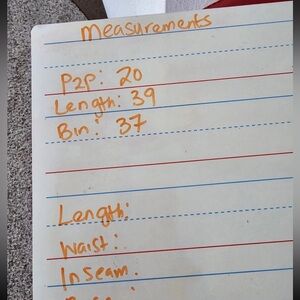 Measurements
P2P: 20
Length: 39
Bin: 37
Length:
Waist:
Inseam: